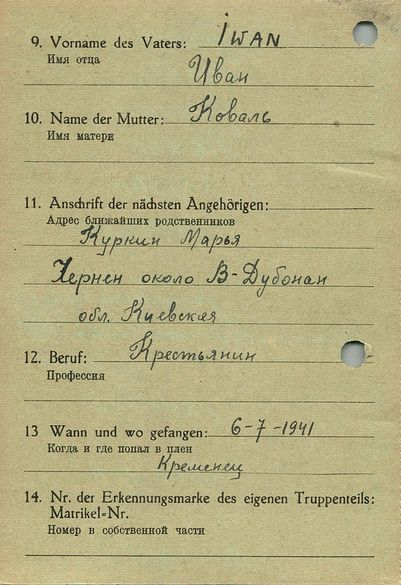 9. Vorname des Vaters: Iwan
Имя отца
Иван
10. Name der Mutter: Коваль
Имя матери
11. Anschrift der nächsten Angehörigen:
Адрес ближайших родственников
Куркин Марья
Чернен около В-Дубонан
обл. Киевская
12. Beruf: Крестьянин
Профессия
13 Wann und wo gefangen: 6-7-1941
Когда и где попал в плен
Кременец
14. Nr. der Erkennungsmarke des eigenen Truppenteils:
Matrikel-Nr.
Номер в собственной части